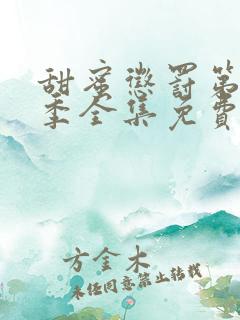 甜蜜懲罰第
季全集免費
方金木
未经同意禁止转载